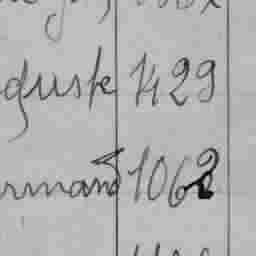 guste 1429
rmand 1062